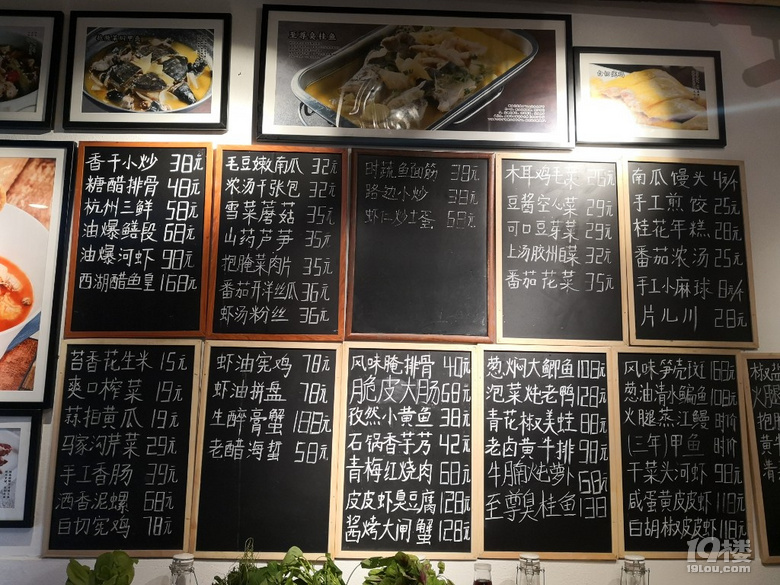 至尊臭桂鱼
香干小炒 38元
糖醋排骨 48元
杭州三鲜 58元
油爆鳝段 68元
油爆河虾 98元
西湖醋鱼皇 168元
毛豆嫩南瓜 32元
浓汤千张包 32元
雪菜蘑菇 35元
山药芦笋 35元
把腌菜肉片 35元
番茄开洋丝瓜 36元
虾汤粉丝 36元
时蔬鱼面筋 38元
路边小炒 38元
虾仁炒土蛋 68元
木耳鸡毛菜 26元
豆酱空心菜 29元
可口豆芽菜 29元
上汤胶州白菜 32元
番茄花菜 35元
南瓜馒头 4元/个
手工煎饺 25元
桂花年糕 28元
番茄浓汤 25元
手工小麻球 8元/个
片儿川 28元
苔香花生米 15元
爽口榨菜 19元
蒜拍黄瓜 19元
马家沟芹菜 29元
手工香肠 39元
酒香泥螺 68元
白切宪鸡 78元
虾油宪鸡 78元
虾油拼盘 78元
生醉膏蟹 188元
老醋海蜇 58元
风味腌排骨 40元
脆皮大肠 68元
孜然小黄鱼 38元
石锅香芋艿 42元
青梅红烧肉 68元
皮皮虾臭豆腐 128元
酱烤大闸蟹 128元
葱焖大鲫鱼 108元
泡菜炖老鸭 128元
青花椒美蛙 88元
老卤黄牛排 98元
牛腩炖萝卜 68元
至尊臭桂鱼 138
风味笋壳斑 168元
葱油清水鳊鱼 118元
火腿蒸江鳗 时价
(三年)甲鱼 时价
干菜头河虾 98元
咸蛋黄皮皮虾 118元
白胡椒皮皮虾 118元
19楼
19lou.com